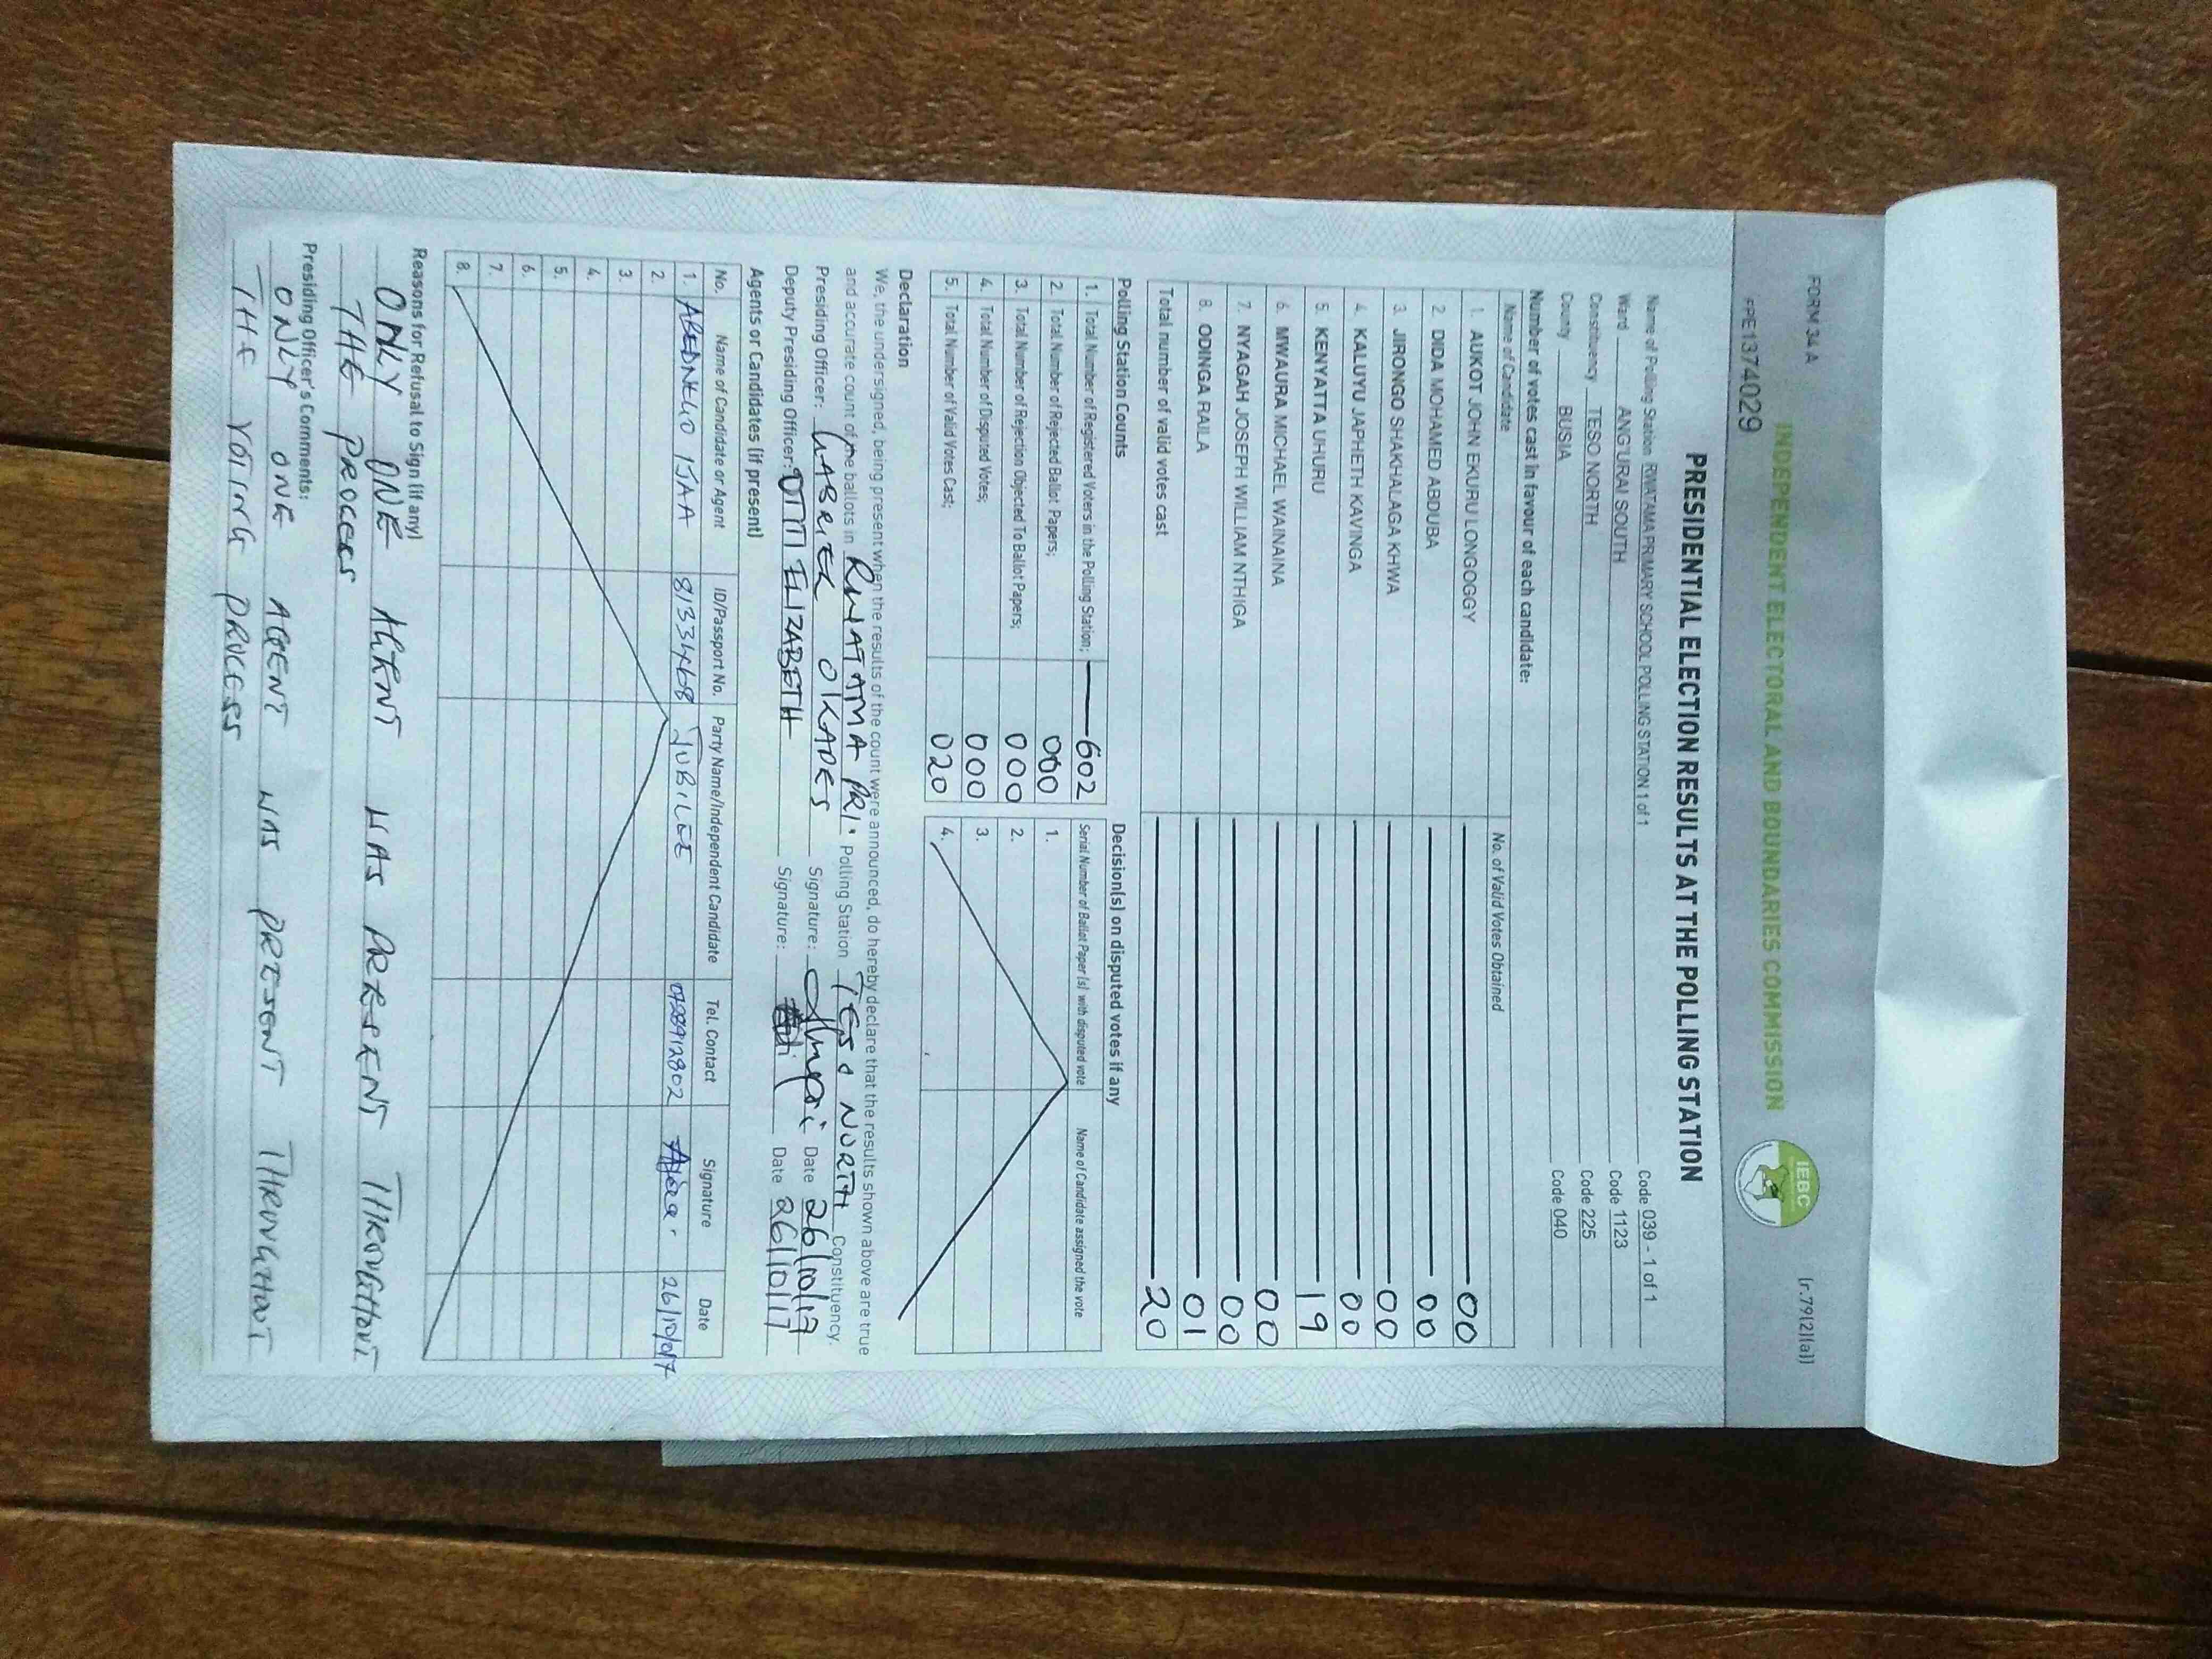 FORM 34 A
[r.79(2)(a)]
INDEPENDENT ELECTORAL AND BOUNDARIES COMMISSION
IEBC
PPE1374029
PRESIDENTIAL ELECTION RESULTS AT THE POLLING STATION
Name of Polling Station RWATAMA PRIMARY SCHOOL POLLING STATION 1 of 1 Code 039 - 1 of 1
Ward ANG'URAI SOUTH Code 1123
Constituency TESO NORTH Code 225
County BUSIA Code 040
Number of votes cast in favour of each candidate:
Name of Candidate No. of Valid Votes Obtained
1. AUKOT JOHN EKURU LONGOGGY 00
2. DIDA MOHAMED ABDUBA 00
3. JIRONGO SHAKHALAGA KHWA 00
4. KALUYU JAPHETH KAVINGA 00
5. KENYATTA UHURU 19
6. MWAURA MICHAEL WAINAINA 00
7. NYAGAH JOSEPH WILLIAM NTHIGA 00
8. ODINGA RAILA 01
Total number of valid votes cast 20
Polling Station Counts
1. Total Number of Registered Voters in the Polling Station; 602
2. Total Number of Rejected Ballot Papers; 000
3. Total Number of Rejection Objected To Ballot Papers; 000
4. Total Number of Disputed Votes; 000
5. Total Number of Valid Votes Cast; 020
Decision(s) on disputed votes if any
Serial Number of Ballot Paper (s) with disputed vote Name of Candidate assigned the vote
1.
2.
3.
4.
Declaration
We, the undersigned, being present when the results of the count were announced, do hereby declare that the results shown above are true
and accurate count of the ballots in RWATAMA PRI. Polling Station TESO NORTH Constituency.
Presiding Officer: GABRIEL OKADES Signature: Date 26/10/17
Deputy Presiding Officer: OTITI ELIZABETH Signature: Date 26/10/17
Agents or Candidates (if present)
No. Name of Candidate or Agent ID/Passport No. Party Name/Independent Candidate Tel. Contact Signature Date
1. ABEDNEGO IJAA 81333468 JUBILEE 0728912802 26/10/017
2.
3.
4.
5.
6.
7.
8.
Reasons for Refusal to Sign (if any)
ONLY ONE AGENT WAS PRESENT THROUGHOUT
THE PROCESS
Presiding Officer's Comments:
ONLY ONE AGENT WAS PRESENT THROUGHOUT
THE VOTING PROCESS